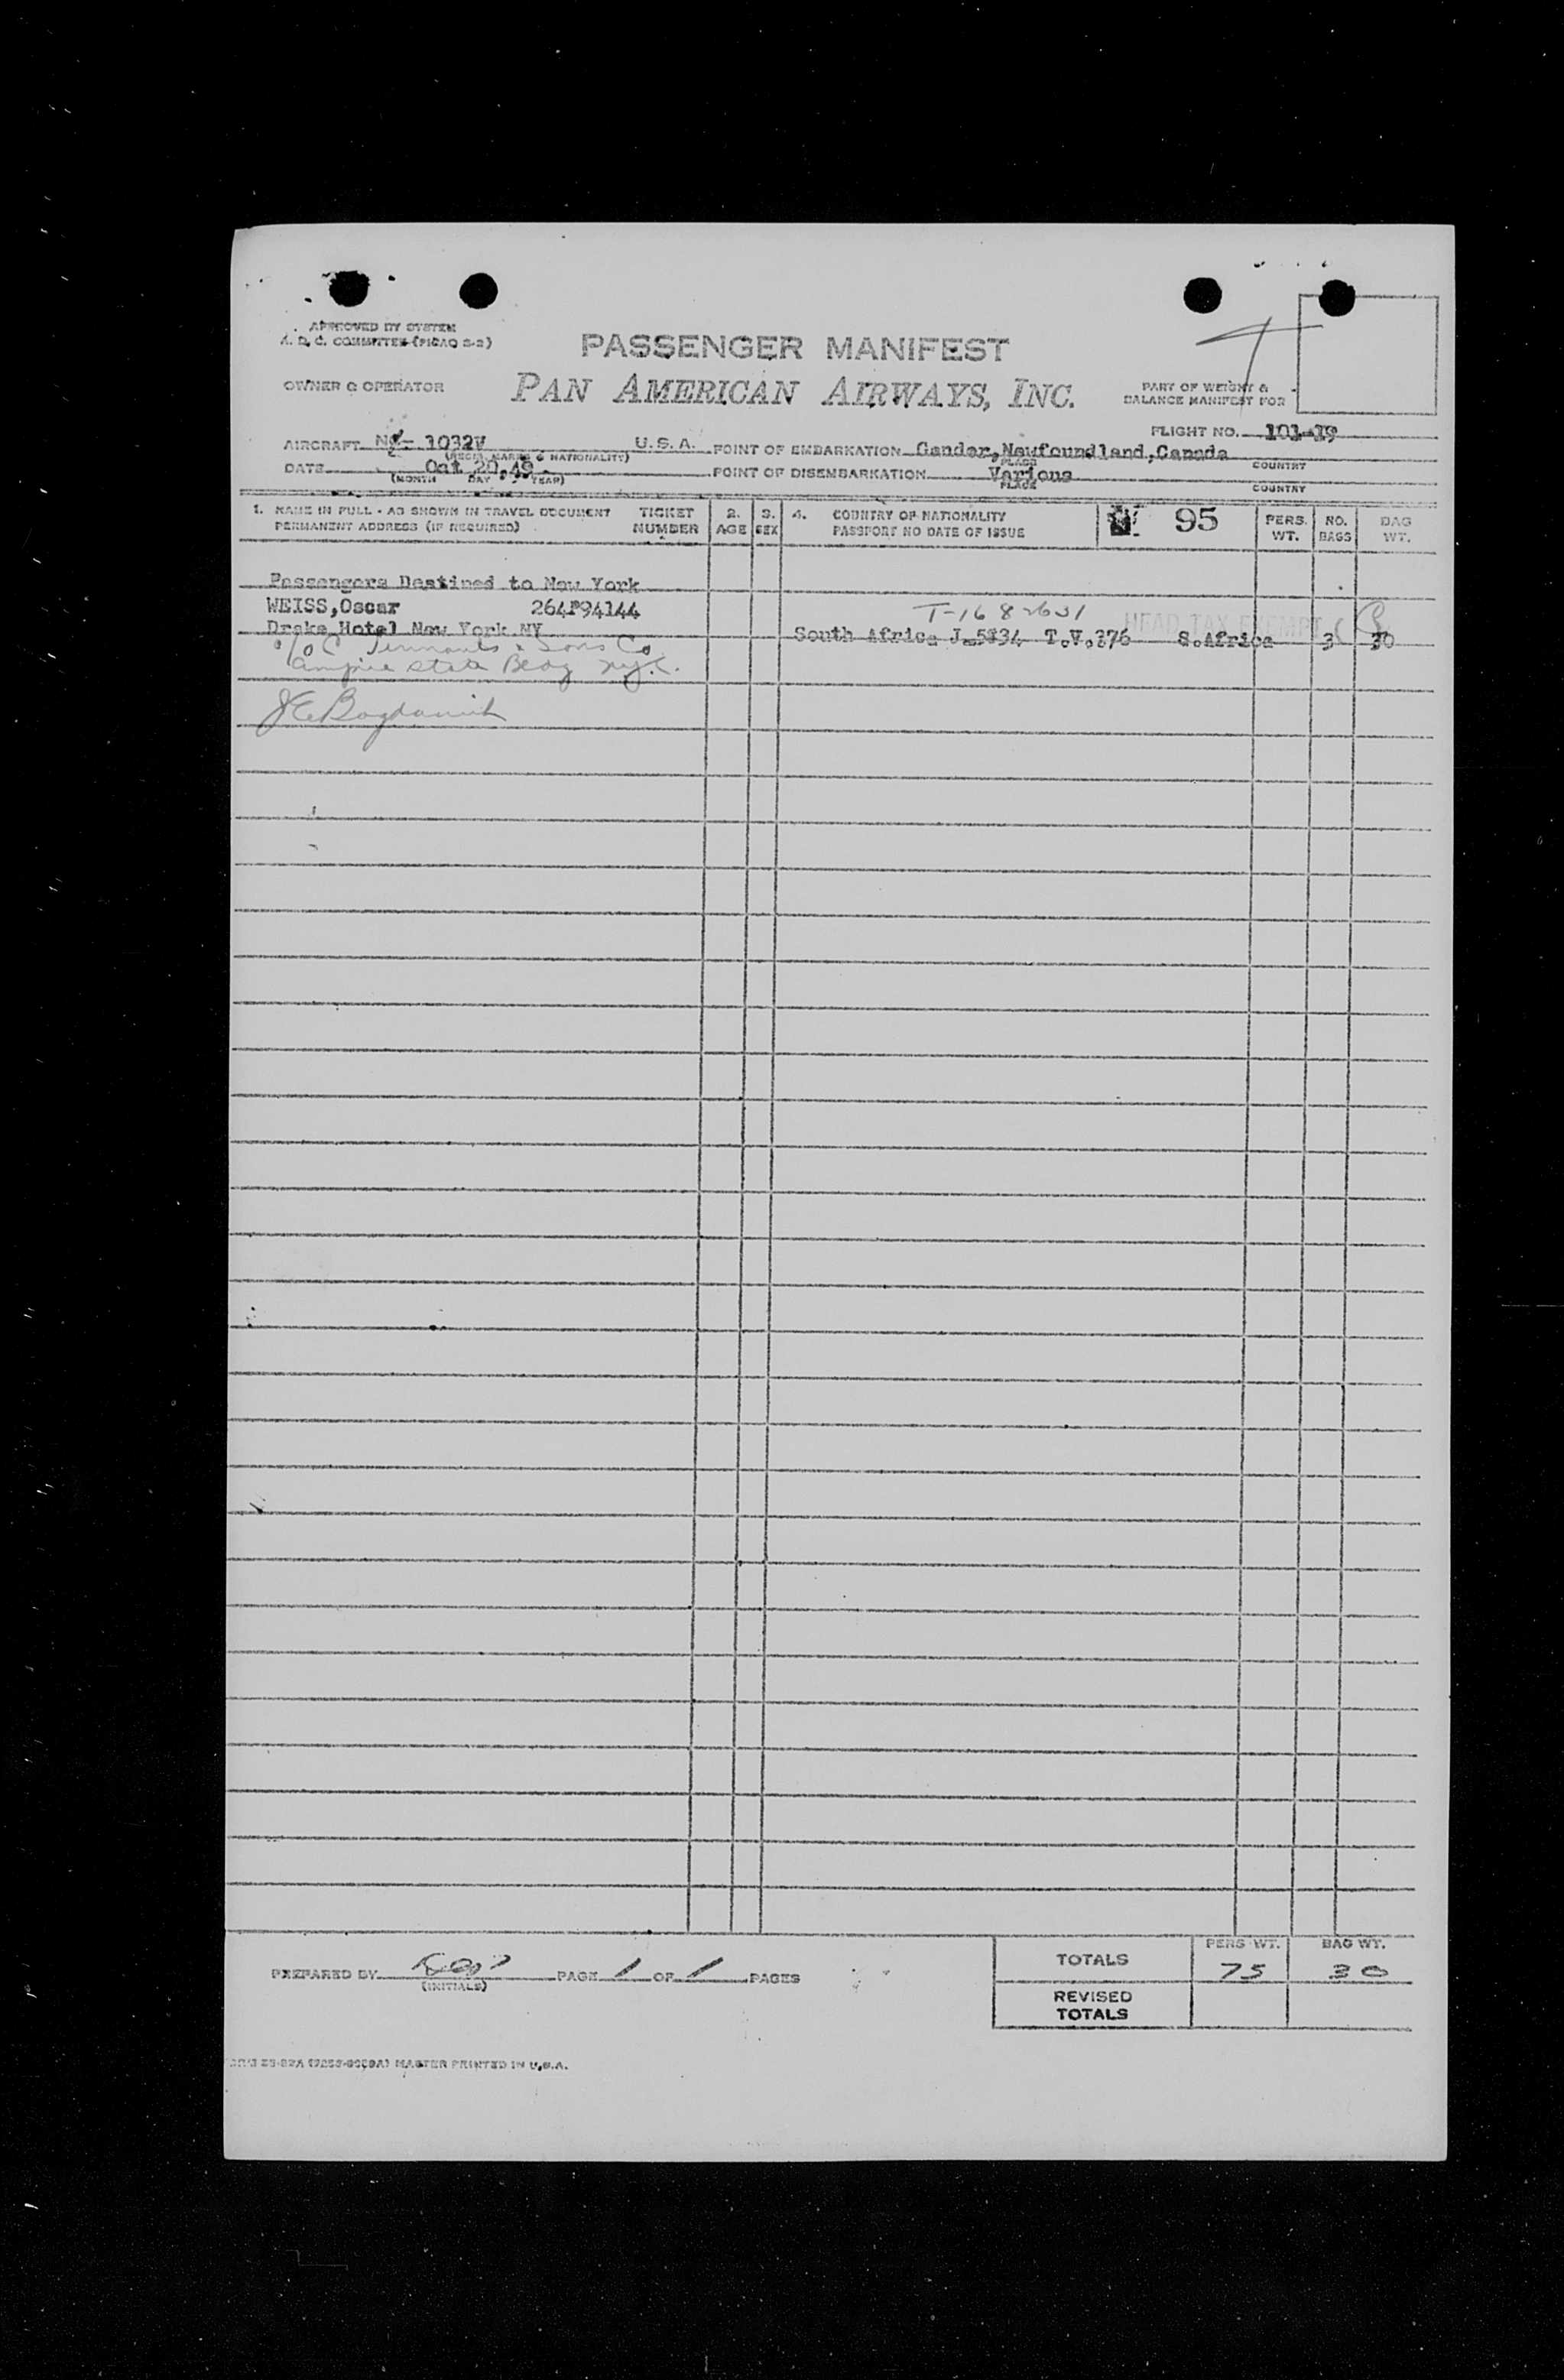 APPROVED BY SYSTEM
A. D. C. COMMITTEE (PICAO 2-2)
PASSENGER MANIFEST
OWNER & OPERATOR
PAN AMERICAN AIRWAYS, INC.
PART OF WEIGHT &
BALANCE MANIFEST FOR
FLIGHT NO. 101-19
AIRCRAFT 1032V U.S.A. POINT OF EMBARKATION Gander, Newfoundland, Canada
(REGIS. MARKS & NATIONALITY) PLACE COUNTRY
DATE Oct 20, 49 POINT OF DISEMBARKATION Various
(MONTH DAY YEAR) PLACE COUNTRY
1. NAME IN FULL - AS SHOWN IN TRAVEL DOCUMENT TICKET 2. 3. 4. COUNTRY OF NATIONALITY 95 PERS. NO. BAG
PERMANENT ADDRESS (IF REQUIRED) NUMBER AGE SEX PASSPORT NO DATE OF ISSUE WT. BAGS WT.
Passengers Destined to New York
WEISS,Oscar 264P94144 T-1682631 HEAD TAX EXEMPT
Drake Hotel New York NY South Africa T.V.376 S.Africa 3 30
c/o C Tennants & Sons Co
Empire State Bldg NYC.
PREPARED BY PAGE 1 OF 1 PAGES
(INITIALS)
TOTALS PERS WT. 75 BAG WT. 30
REVISED
TOTALS
MASTER PRINTED IN U.S.A.